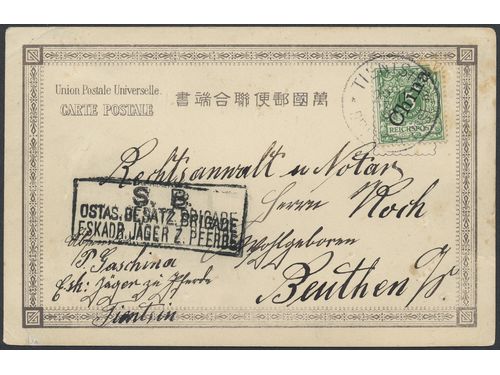 Union Postale Universelle.
CARTE POSTALE
書端合聯便郵國萬
TIENTSIN
China
REICHSPOST
Rechtsanwalt u Notar
Herrn Koch
Wohlgeboren
Beuthen
S. B.
OSTAS. BESATZ. BRIGADE
ESKADR. JÄGER Z. PFERDE
Esk: Jäger zu Pferde
Tientsin